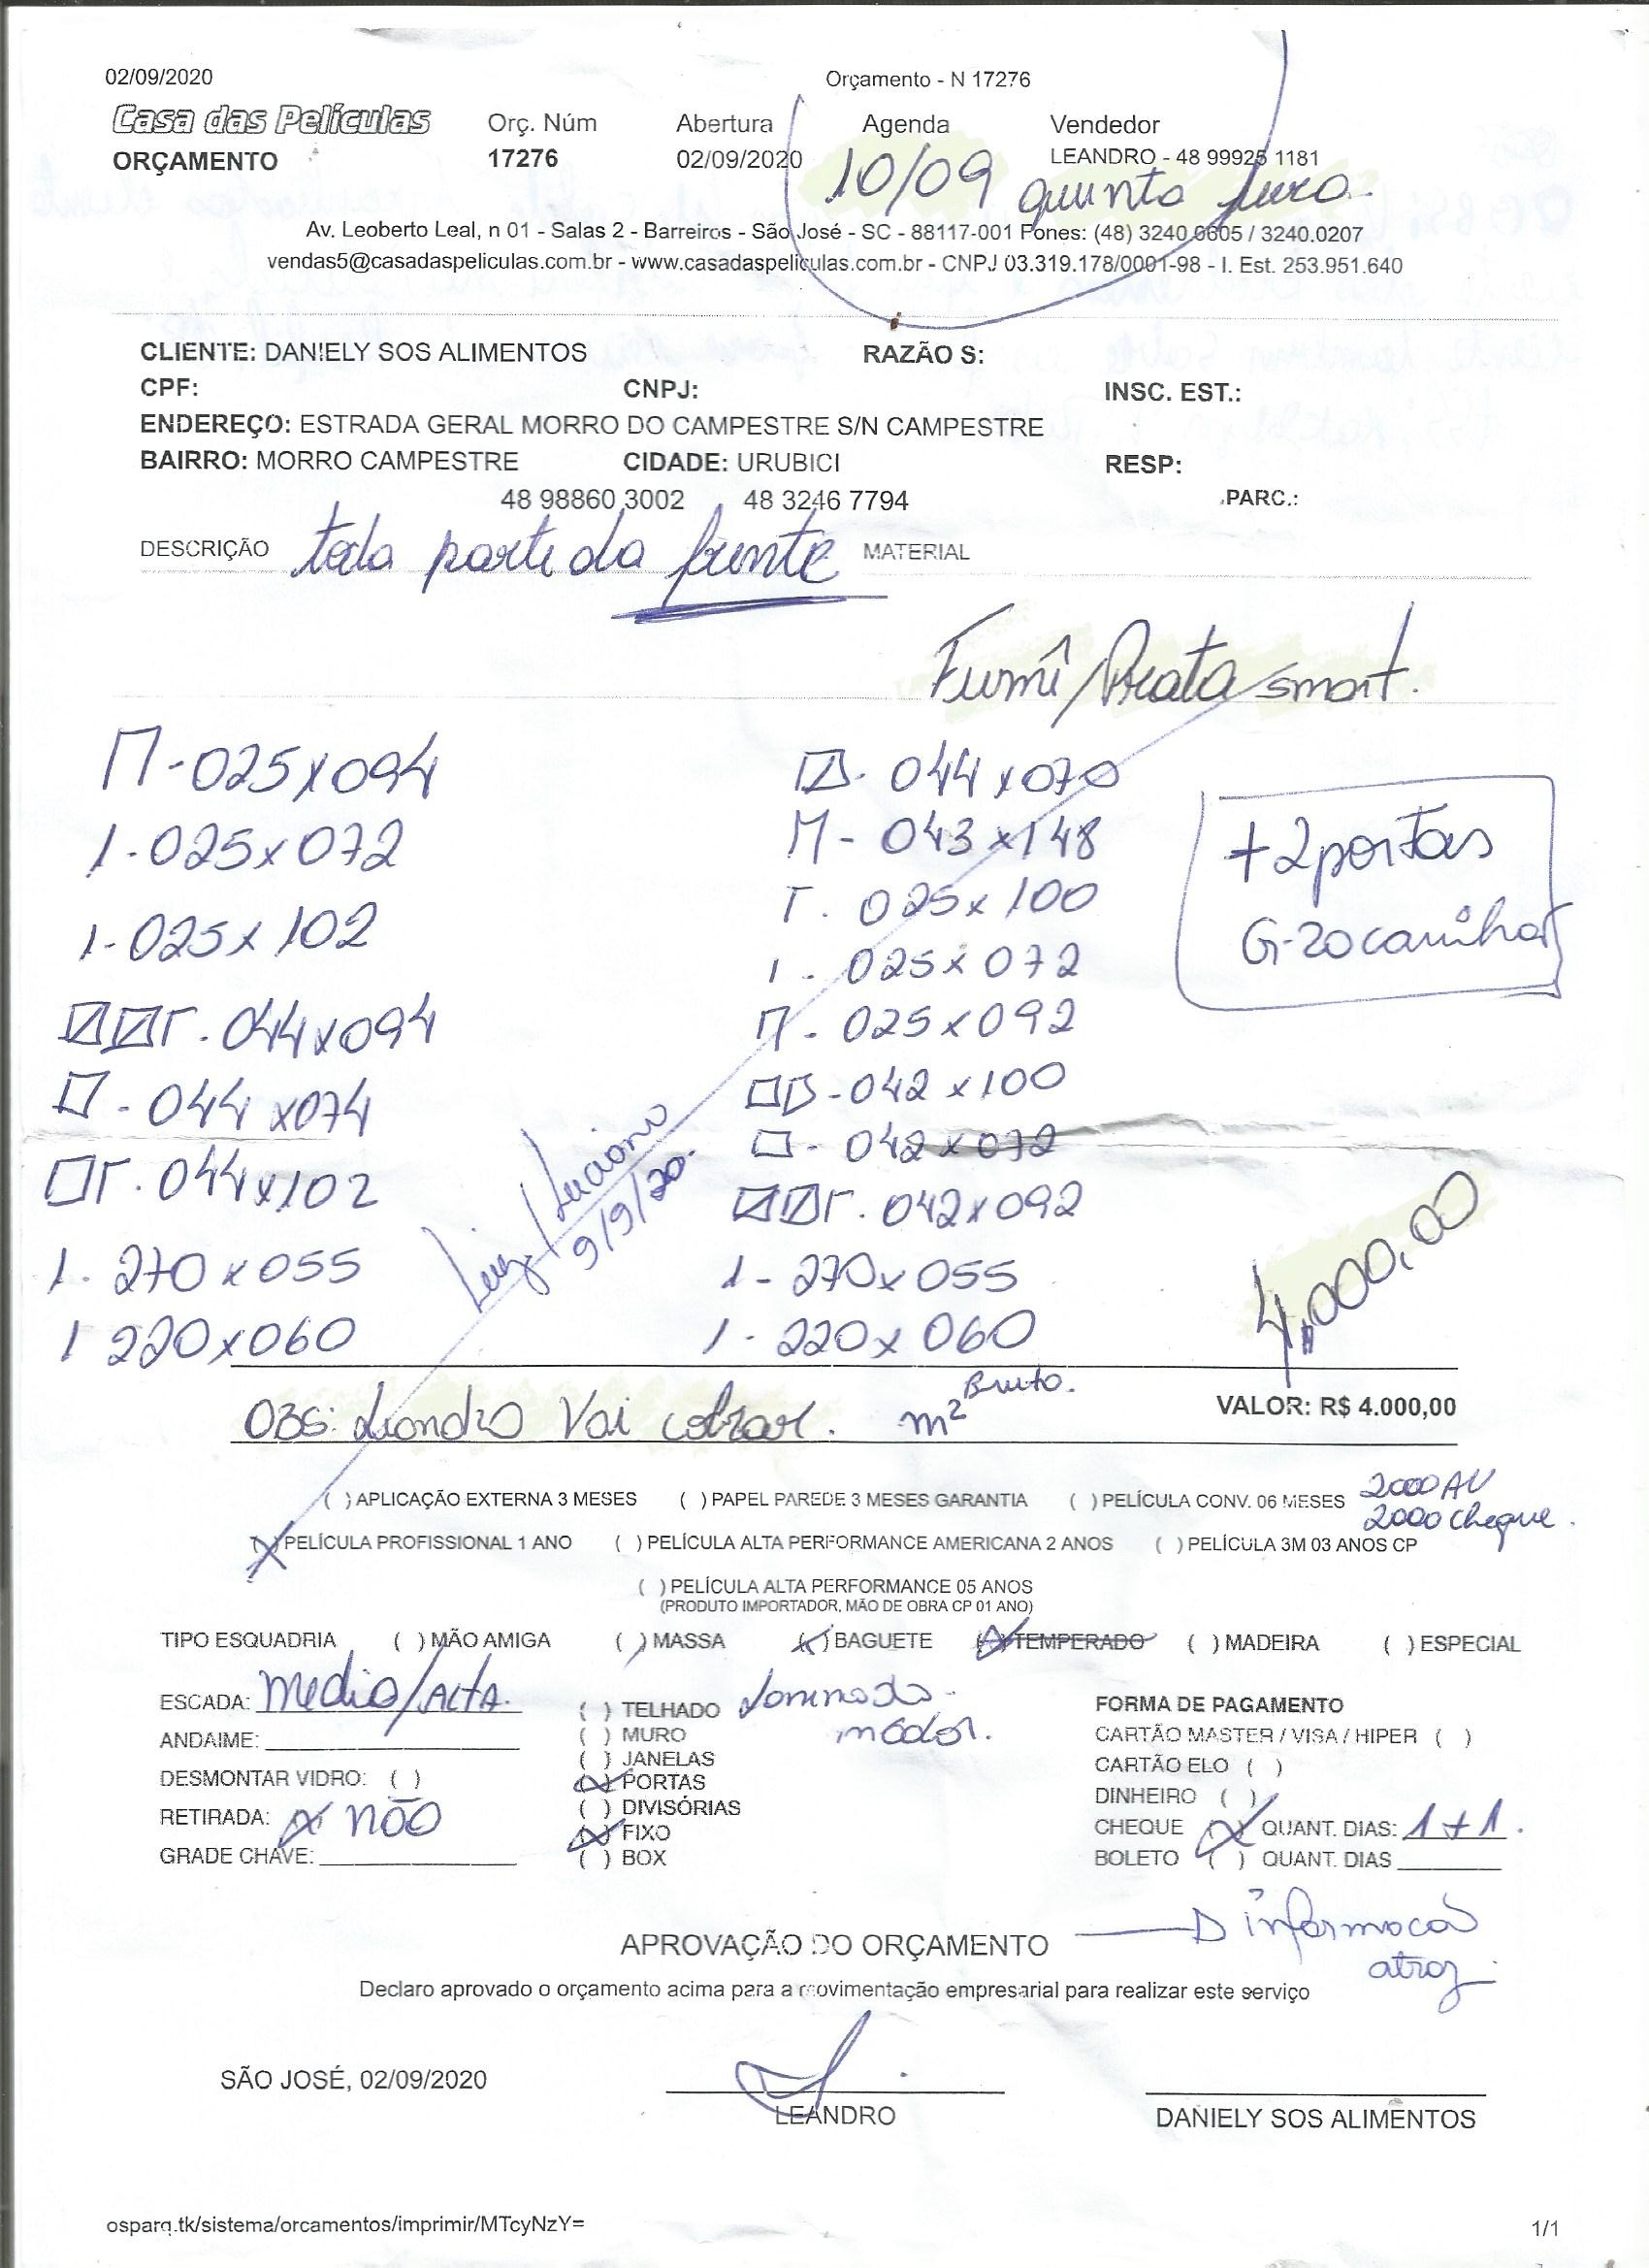 02/09/2020
Orçamento - N 17276
Casa das Películas
Orç. Núm
Abertura
Agenda
Vendedor
ORÇAMENTO
17276
02/09/2020
10/09 quinta feira
LEANDRO - 48 99925 1181
Av. Leoberto Leal, n 01 - Salas 2 - Barreiros - São José - SC - 88117-001 Fones: (48) 3240.0605 / 3240.0207
vendas5@casadaspeliculas.com.br - www.casadaspeliculas.com.br - CNPJ 03.319.178/0001-98 - I. Est. 253.951.640
CLIENTE: DANIELY SOS ALIMENTOS
RAZÃO S:
CPF:
CNPJ:
INSC. EST.:
ENDEREÇO: ESTRADA GERAL MORRO DO CAMPESTRE S/N CAMPESTRE
BAIRRO: MORRO CAMPESTRE
CIDADE: URUBICI
RESP:
48 98860 3002
48 3246 7794
PARC.:
DESCRIÇÃO toda parte da frente
MATERIAL
Fumê/Prata smart.
- 025x094
1 - 025x072
1 - 025x102
. 044x094
- 044x074
. 044x102
1 - 270x055
1 220x060
- 044x070
- 043x148
. 025x100
1 - 025x072
- 025x092
- 042x100
- 042x072
. 042x092
1 - 270x055
1 - 220x060
+2portas
G-20
Luiz/Luciano
9/9/20.
4.000,00
Obs: Leandro Vai cobrar. m² Bruto.
VALOR: R$ 4.000,00
( ) APLICAÇÃO EXTERNA 3 MESES ( ) PAPEL PAREDE 3 MESES GARANTIA ( ) PELÍCULA CONV. 06 MESES
2000 AV
2000 cheque.
(X) PELÍCULA PROFISSIONAL 1 ANO ( ) PELÍCULA ALTA PERFORMANCE AMERICANA 2 ANOS ( ) PELÍCULA 3M 03 ANOS CP
( ) PELÍCULA ALTA PERFORMANCE 05 ANOS
(PRODUTO IMPORTADOR, MÃO DE OBRA CP 01 ANO)
TIPO ESQUADRIA ( ) MÃO AMIGA ( ) MASSA (X) BAGUETE (X) TEMPERADO ( ) MADEIRA ( ) ESPECIAL
ESCADA: Media/ALTA.
ANDAIME:
DESMONTAR VIDRO: ( )
RETIRADA: (X) não
GRADE CHAVE:
( ) TELHADO
( ) MURO
( ) JANELAS
(X) PORTAS
( ) DIVISÓRIAS
(X) FIXO
( ) BOX
FORMA DE PAGAMENTO
CARTÃO MASTER / VISA / HIPER ( )
CARTÃO ELO ( )
DINHEIRO ( )
CHEQUE (X) QUANT. DIAS: 1+1.
BOLETO ( ) QUANT. DIAS
informação
atraz
APROVAÇÃO DO ORÇAMENTO
Declaro aprovado o orçamento acima para a movimentação empresarial para realizar este serviço
SÃO JOSÉ, 02/09/2020
LEANDRO
DANIELY SOS ALIMENTOS
osparq.tk/sistema/orcamentos/imprimir/MTcyNzY=
1/1